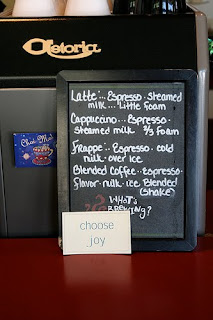 Astoria
Chai Mate
Latte... Espresso. steamed
milk... Little foam
Cappuccino... Espresso.
steamed milk 2/3 foam
frappe... Espresso. cold
milk. over ice
Blended Coffee. Espresso.
flavor. milk. ice Blended
(Shake)
What's
Brewing?
choose
joy